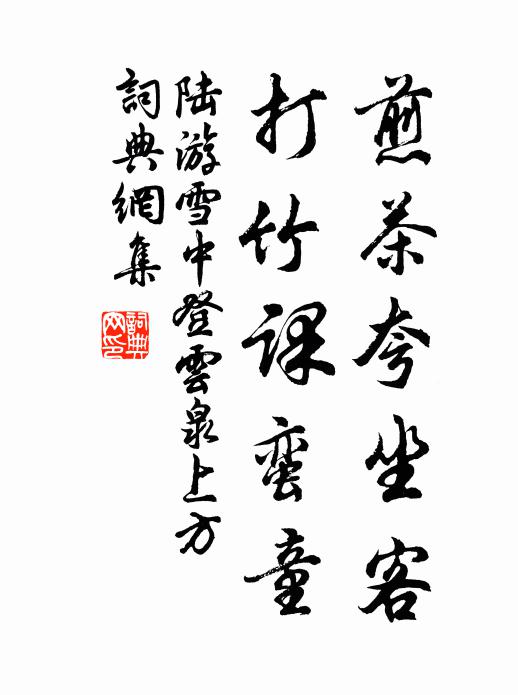 煎茶夸坐客
打竹課蛮童
陆游雪中登雲泉上方
詞典網集
詞典网印